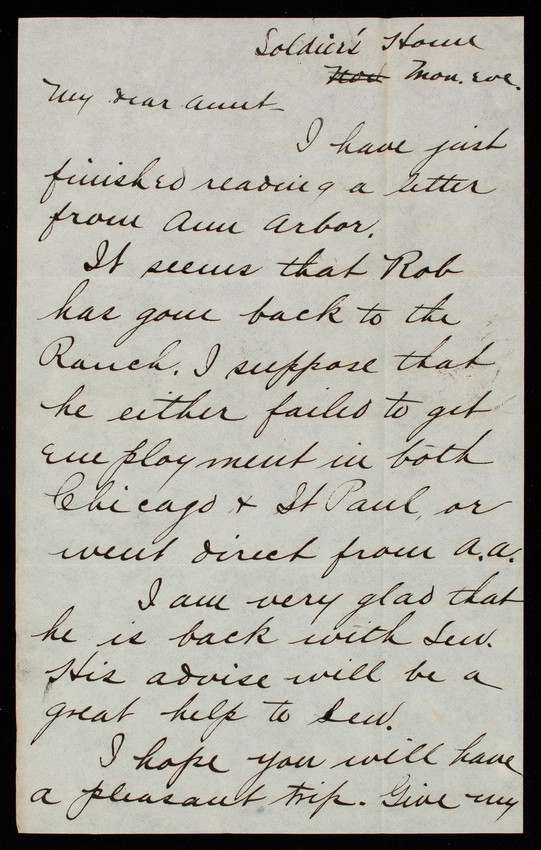 Soldier's Home
Nov Mon. Eve.
My dear Aunt
I have just
finished reading a letter
from Ann Arbor.
It seems that Rob
has gone back to the
Ranch. I suppose that
he either failed to get
employment in both
Chicago & St Paul, or
went direct from A.A.
I am very glad that
he is back with Lew.
His advise will be a
great help to Lew.
I hope you will have
a pleasant trip. Give my